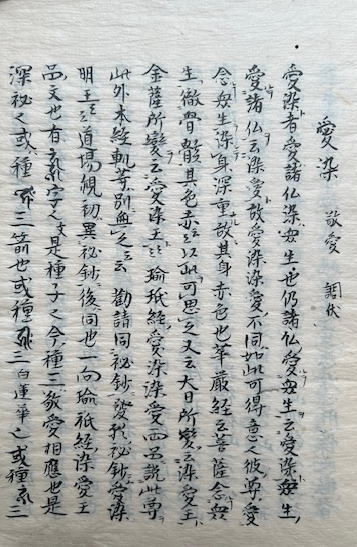 愛染 敬愛 調伏
愛染者愛諸仏染衆生也仍諸仏愛衆生云愛染衆生
愛諸仏云染愛故愛染染愛不同如此可得意又彼尊愛
念衆生染身深重故其身赤色也華厳経云菩薩念衆
生徹骨髄其色赤云以此可思之又云大日所変云染愛王
金薩所変云愛染王云瑜祇経愛染染愛両品説此尊
此外本経軌等別無之云勧請同秘鈔発願秘鈔愛染
明王云道場観初異秘鈔後同也一向瑜祇経染愛王
品文也有字之文是種子也今種三敬愛相應也是
深秘也或種三箭也或種三白蓮華也或種三